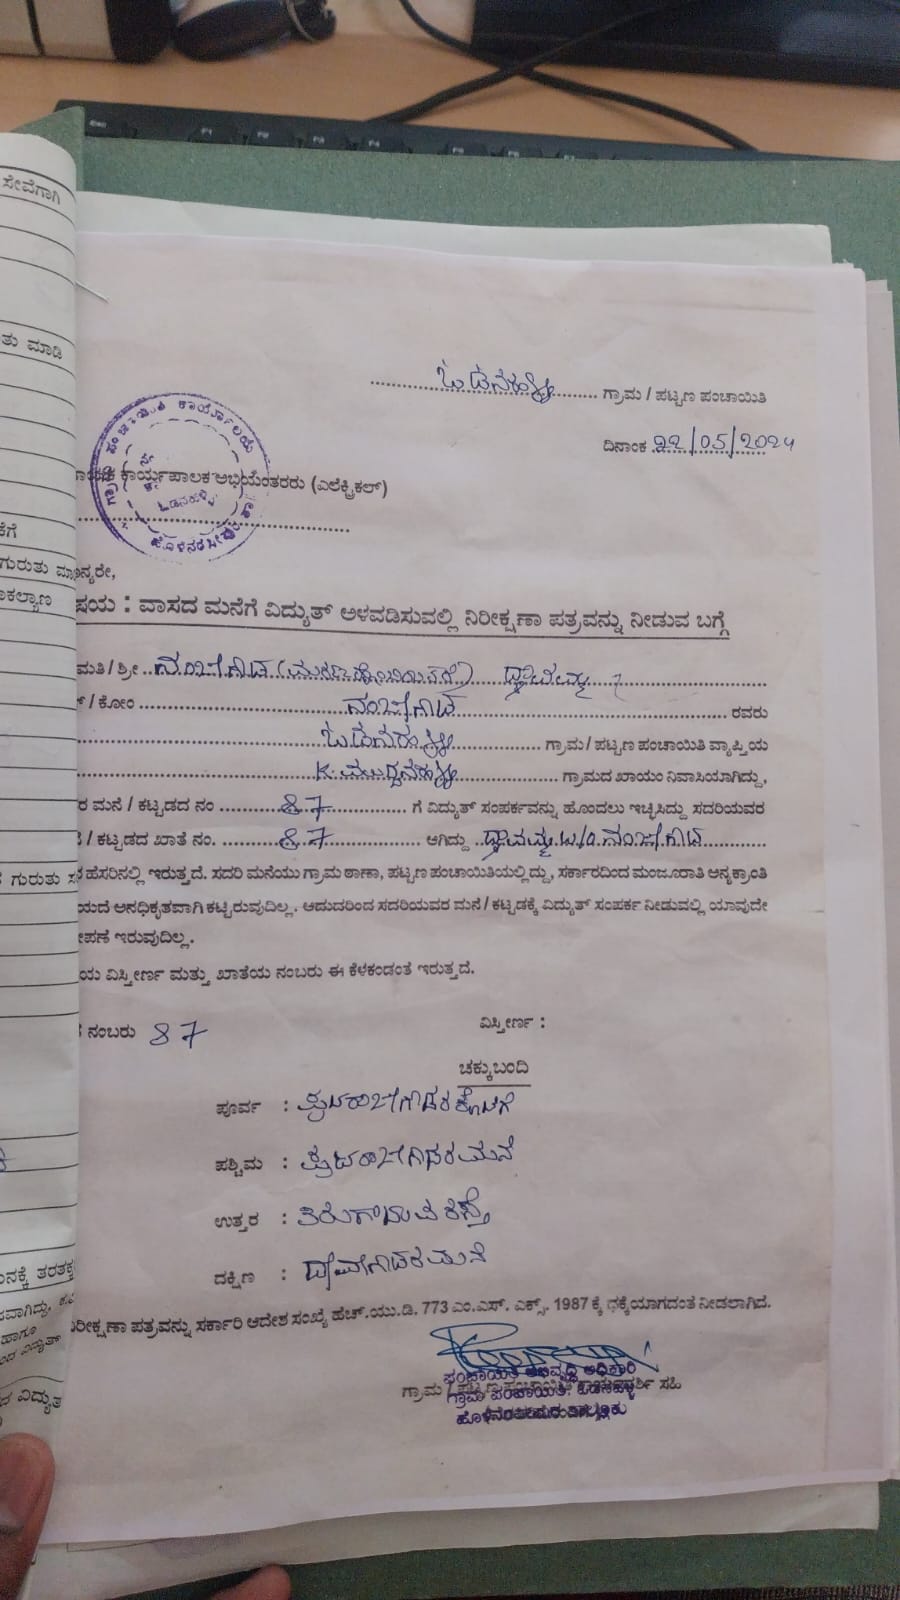 ಸೇವೆಗಾಗಿ
ತು ಮಾಡಿ
ಗುರುತು
ಕಲ್ಯಾಣ
ಗುರುತು
ಓಡನಹಳ್ಳಿ ಗ್ರಾಮ / ಪಟ್ಟಣ ಪಂಚಾಯಿತಿ
ದಿನಾಂಕ 22/05/2024
ಗ್ರಾಮ ಪಂಚಾಯಿತಿ ಕಾರ್ಯಾಲಯ
ಓಡನಹಳ್ಳಿ
ಕಾರ್ಯಪಾಲಕ ಅಭಿಯಂತರರು (ಎಲೆಕ್ಟ್ರಿಕಲ್)
ನ್ಯರೇ,
ಷಯ : ವಾಸದ ಮನೆಗೆ ವಿದ್ಯುತ್ ಅಳವಡಿಸುವಲ್ಲಿ ನಿರೀಕ್ಷಣಾ ಪತ್ರವನ್ನು ನೀಡುವ ಬಗ್ಗೆ
ಮತಿ / ಶ್ರೀ ನಂಜೇಗೌಡ
/ ಕೋಂ ನಂಜೇಗೌಡ ರವರು
ಓಡನಹಳ್ಳಿ ಗ್ರಾಮ / ಪಟ್ಟಣ ಪಂಚಾಯಿತಿ ವ್ಯಾಪ್ತಿಯ
K. ಮುದ್ದನಹಳ್ಳಿ ಗ್ರಾಮದ ಖಾಯಂ ನಿವಾಸಿಯಾಗಿದ್ದು,
ರ ಮನೆ / ಕಟ್ಟಡದ ನಂ 87 ಗೆ ವಿದ್ಯುತ್ ಸಂಪರ್ಕವನ್ನು ಹೊಂದಲು ಇಚ್ಛಿಸಿದ್ದು ಸದರಿಯವರ
/ ಕಟ್ಟಡದ ಖಾತೆ ನಂ. 87 ಆಗಿದ್ದು w/o ನಂಜೇಗೌಡ
ಹೆಸರಿನಲ್ಲಿ ಇರುತ್ತದೆ. ಸದರಿ ಮನೆಯು ಗ್ರಾಮ ಠಾಣಾ, ಪಟ್ಟಣ ಪಂಚಾಯಿತಿಯಲ್ಲಿದ್ದು, ಸರ್ಕಾರದಿಂದ ಮಂಜೂರಾತಿ ಅನ್ಯಕ್ರಾಂತಿ
ಯದೆ ಅನಧಿಕೃತವಾಗಿ ಕಟ್ಟಿರುವುದಿಲ್ಲ. ಆದುದರಿಂದ ಸದರಿಯವರ ಮನೆ / ಕಟ್ಟಡಕ್ಕೆ ವಿದ್ಯುತ್ ಸಂಪರ್ಕ ನೀಡುವಲ್ಲಿ ಯಾವುದೇ
ೇಪಣೆ ಇರುವುದಿಲ್ಲ.
ಯ ವಿಸ್ತೀರ್ಣ ಮತ್ತು ಖಾತೆಯ ನಂಬರು ಈ ಕೆಳಕಂಡಂತೆ ಇರುತ್ತದೆ.
ನಂಬರು 87 ವಿಸ್ತೀರ್ಣ :
ಚಕ್ಕುಬಂದಿ
ಪೂರ್ವ : ಪುಟರಾಜೇಗೌಡರ ಕೊಟಿಗೆ
ಪಶ್ಚಿಮ : ಪುಟರಾಜೇಗೌಡರ ಮನೆ
ಉತ್ತರ : ತಿರುಗಾಡುವ ರಸ್ತೆ
ದಕ್ಷಿಣ : ದೇವೇಗೌಡರ ಮನೆ
ನಿರೀಕ್ಷಣಾ ಪತ್ರವನ್ನು ಸರ್ಕಾರಿ ಆದೇಶ ಸಂಖ್ಯೆ ಹೆಚ್.ಯು.ಡಿ. 773 ಎಂ.ಎಸ್. ಎಕ್ಸ್. 1987 ಕ್ಕೆ ಧಕ್ಕೆಯಾಗದಂತೆ ನೀಡಲಾಗಿದೆ.
ಪಂಚಾಯಿತಿ ಅಭಿವೃದ್ಧಿ ಅಧಿಕಾರಿ
ಗ್ರಾಮ / ಪಟ್ಟಣ ಪಂಚಾಯಿತಿ ಕಾರ್ಯದರ್ಶಿ ಸಹಿ
ಗ್ರಾಮ ಪಂಚಾಯಿತಿ. ಓಡನಹಳ್ಳಿ
ಹೊಳೆನರಸೀಪುರ ತಾಲ್ಲೂಕು